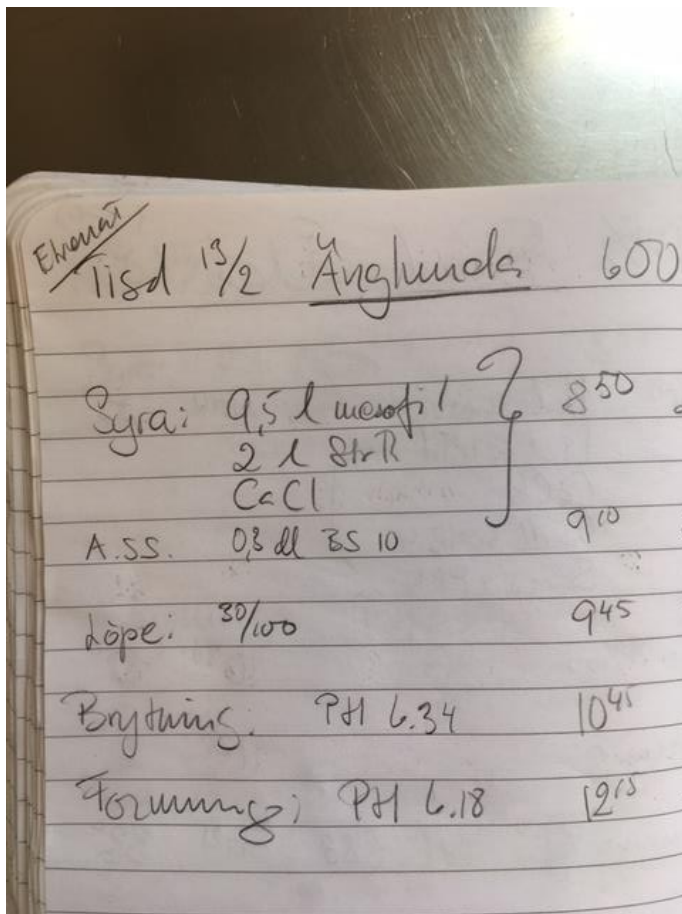 Tisd 13/2 Änglunda 600
Syra: 9,5 l mesofil 8 50
2 l StrR
CaCl
A.SS. 0,3 dl BS 10 9 10
Löpe: 30/100 9 45
Brytning: PH 6.34 10 45
Formning: PH 6.18 12 15